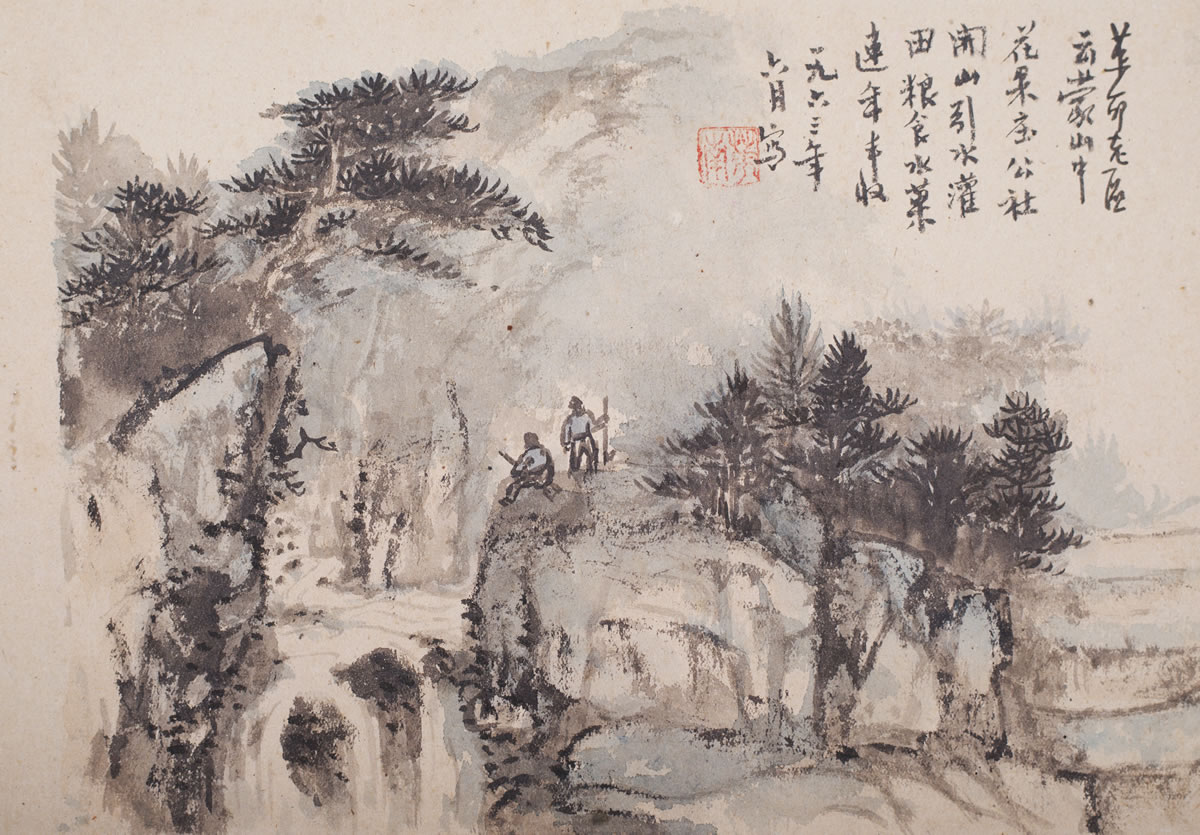 革命老区
云蒙山中
花果庄公社
開山引水灌
田粮食水菓
連年丰收
一九六三年
六月寫